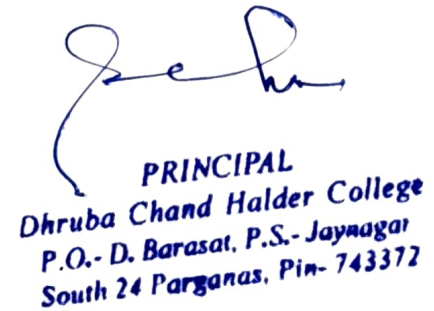 PRINCIPAL
Dhruba Chand Halder College
P.O.- D. Barasat, P.S.- Jaynagar
South 24 Parganas, Pin- 743372